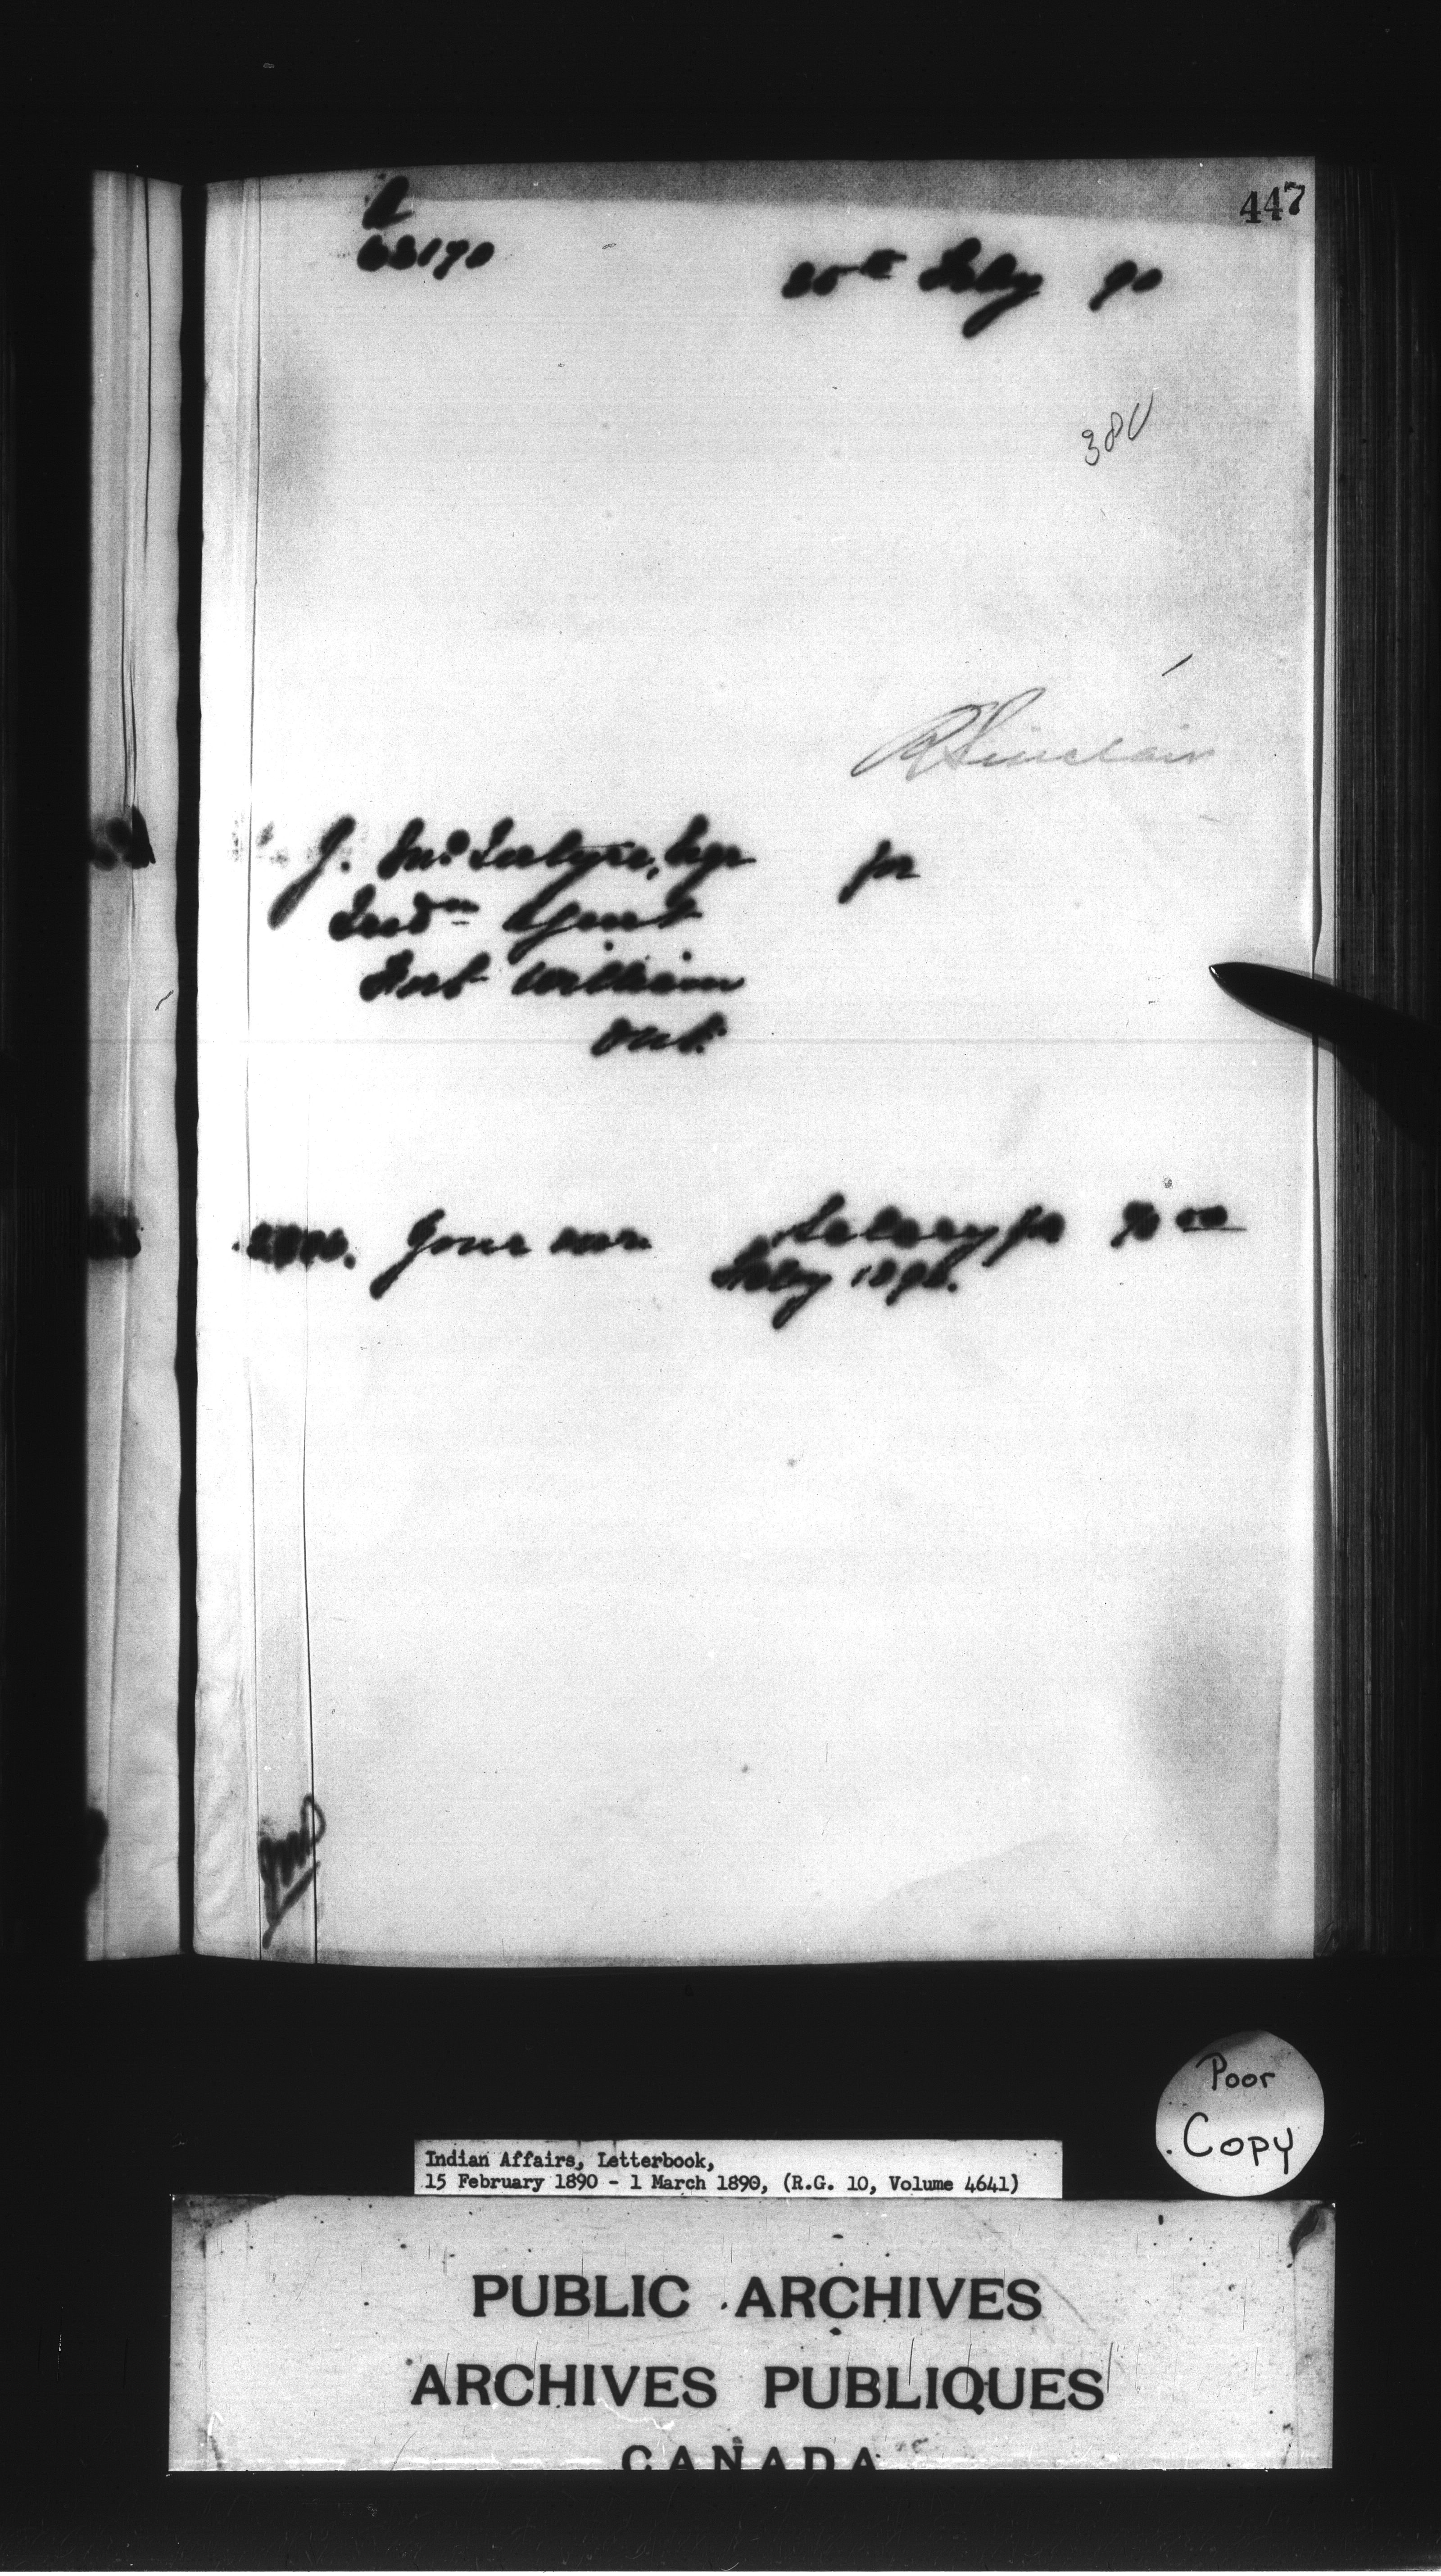 447
63190
25th Feby 90
380
R Sinclair
J. McIntyre, Esqr
for
Indn Agent
Fort William
Ont.
Your own Salary for 90 00
Feby 1890.
Poor
Copy
Indian Affairs, Letterbook,
15 February 1890 - 1 March 1890, (R.G. 10, Volume 4641)
PUBLIC ARCHIVES
ARCHIVES PUBLIQUES
CANADA